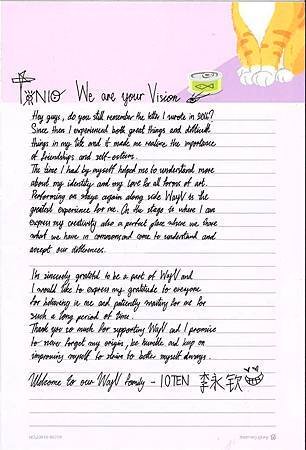 We are your Vision
Hey guys, do you still remember the letter I wrote in 2018?
Since then I experienced both great things and difficult
things in my life and it made me realize the importance
of friendships and self-esteem.
The time I had by myself helped me to understand more
about my identity and my love for all forms of art.
Performing on stage again along side WayV is the
greatest experience for me. On the stage is where I can
express my creativity also a perfect place where we share
what we have in common and come to understand and
accept our differences.
Im sincerely grateful to be a part of WayV and
I would like to express my gratitude to everyone
for believing in me and patiently waiting for me for
such a long period of time.
Thank you so much for supporting WayV and I promise
to never forget my origin, be humble and keep on
improving myself to strive to better myself always.
Welcome to our WayV family - 10TEN 李永钦